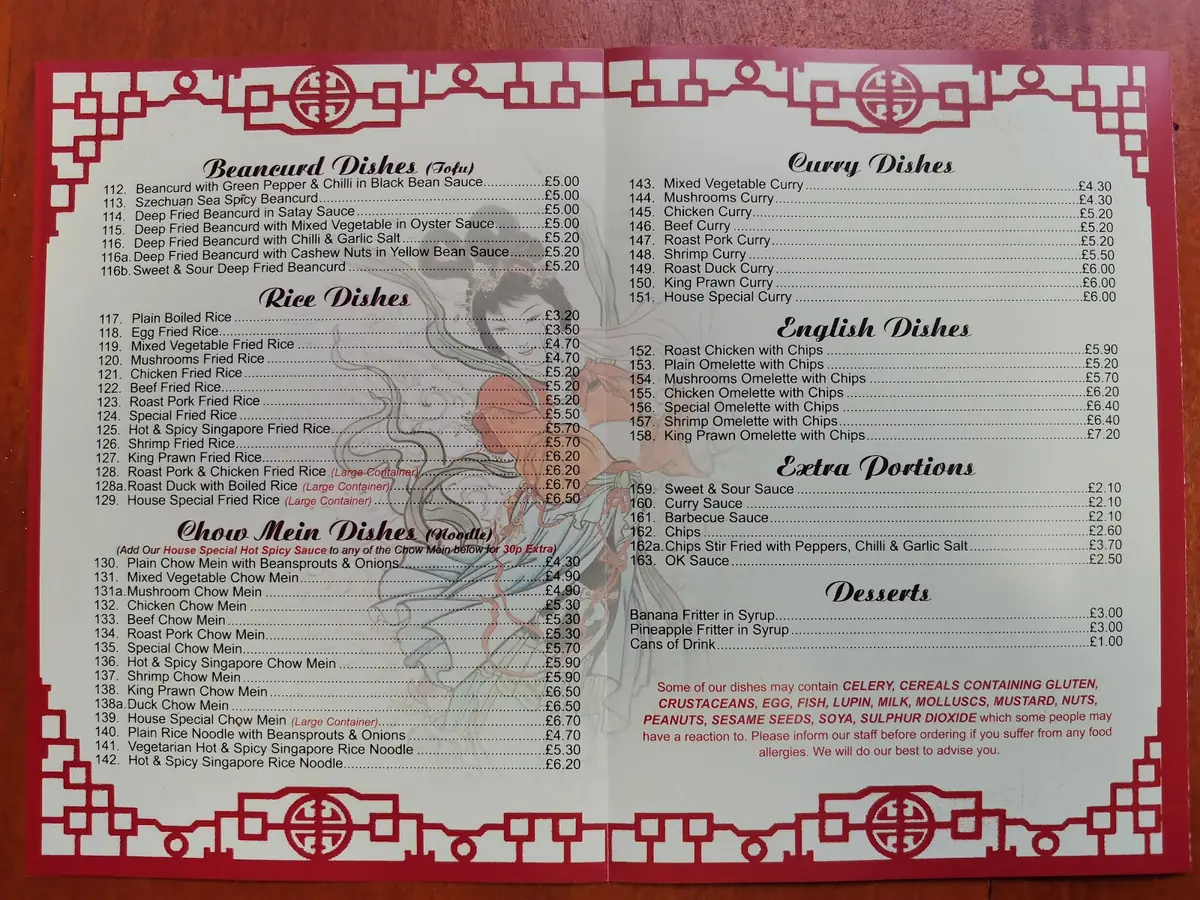 Beancurd Dishes (Tofu)
112. Beancurd with Green Pepper & Chilli in Black Bean Sauce £5.00
113. Szechuan Sea Spicy Beancurd £5.00
114. Deep Fried Beancurd in Satay Sauce £5.00
115. Deep Fried Beancurd with Mixed Vegetable in Oyster Sauce £5.00
116. Deep Fried Beancurd with Chilli & Garlic Salt £5.20
116a. Deep Fried Beancurd with Cashew Nuts in Yellow Bean Sauce £5.20
116b. Sweet & Sour Deep Fried Beancurd £5.20
Rice Dishes
117. Plain Boiled Rice £3.20
118. Egg Fried Rice £3.50
119. Mixed Vegetable Fried Rice £4.70
120. Mushrooms Fried Rice £4.70
121. Chicken Fried Rice £5.20
122. Beef Fried Rice £5.20
123. Roast Pork Fried Rice £5.20
124. Special Fried Rice £5.50
125. Hot & Spicy Singapore Fried Rice £5.70
126. Shrimp Fried Rice £5.70
127. King Prawn Fried Rice £6.20
128. Roast Pork & Chicken Fried Rice (Large Container) £6.20
128a. Roast Duck with Boiled Rice (Large Container) £6.70
129. House Special Fried Rice (Large Container) £6.50
Chow Mein Dishes (Noodle)
(Add Our House Special Hot Spicy Sauce to any of the Chow Mein below for 30p Extra)
130. Plain Chow Mein with Beansprouts & Onions £4.30
131. Mixed Vegetable Chow Mein £4.90
131a. Mushroom Chow Mein £4.90
132. Chicken Chow Mein £5.30
133. Beef Chow Mein £5.30
134. Roast Pork Chow Mein £5.30
135. Special Chow Mein £5.70
136. Hot & Spicy Singapore Chow Mein £5.90
137. Shrimp Chow Mein £5.90
138. King Prawn Chow Mein £6.50
138a. Duck Chow Mein £6.50
139. House Special Chow Mein (Large Container) £6.70
140. Plain Rice Noodle with Beansprouts & Onions £4.70
141. Vegetarian Hot & Spicy Singapore Rice Noodle £5.30
142. Hot & Spicy Singapore Rice Noodle £6.20
Curry Dishes
143. Mixed Vegetable Curry £4.30
144. Mushrooms Curry £4.30
145. Chicken Curry £5.20
146. Beef Curry £5.20
147. Roast Pork Curry £5.20
148. Shrimp Curry £5.50
149. Roast Duck Curry £6.00
150. King Prawn Curry £6.00
151. House Special Curry £6.00
English Dishes
152. Roast Chicken with Chips £5.90
153. Plain Omelette with Chips £5.20
154. Mushrooms Omelette with Chips £5.70
155. Chicken Omelette with Chips £6.20
156. Special Omelette with Chips £6.40
157. Shrimp Omelette with Chips £6.40
158. King Prawn Omelette with Chips £7.20
Extra Portions
159. Sweet & Sour Sauce £2.10
160. Curry Sauce £2.10
161. Barbecue Sauce £2.10
162. Chips £2.60
162a. Chips Stir Fried with Peppers, Chilli & Garlic Salt £3.70
163. OK Sauce £2.50
Desserts
Banana Fritter in Syrup £3.00
Pineapple Fritter in Syrup £3.00
Cans of Drink £1.00
Some of our dishes may contain CELERY, CEREALS CONTAINING GLUTEN,
CRUSTACEANS, EGG, FISH, LUPIN, MILK, MOLLUSCS, MUSTARD, NUTS,
PEANUTS, SESAME SEEDS, SOYA, SULPHUR DIOXIDE which some people may
have a reaction to. Please inform our staff before ordering if you suffer from any food
allergies. We will do our best to advise you.